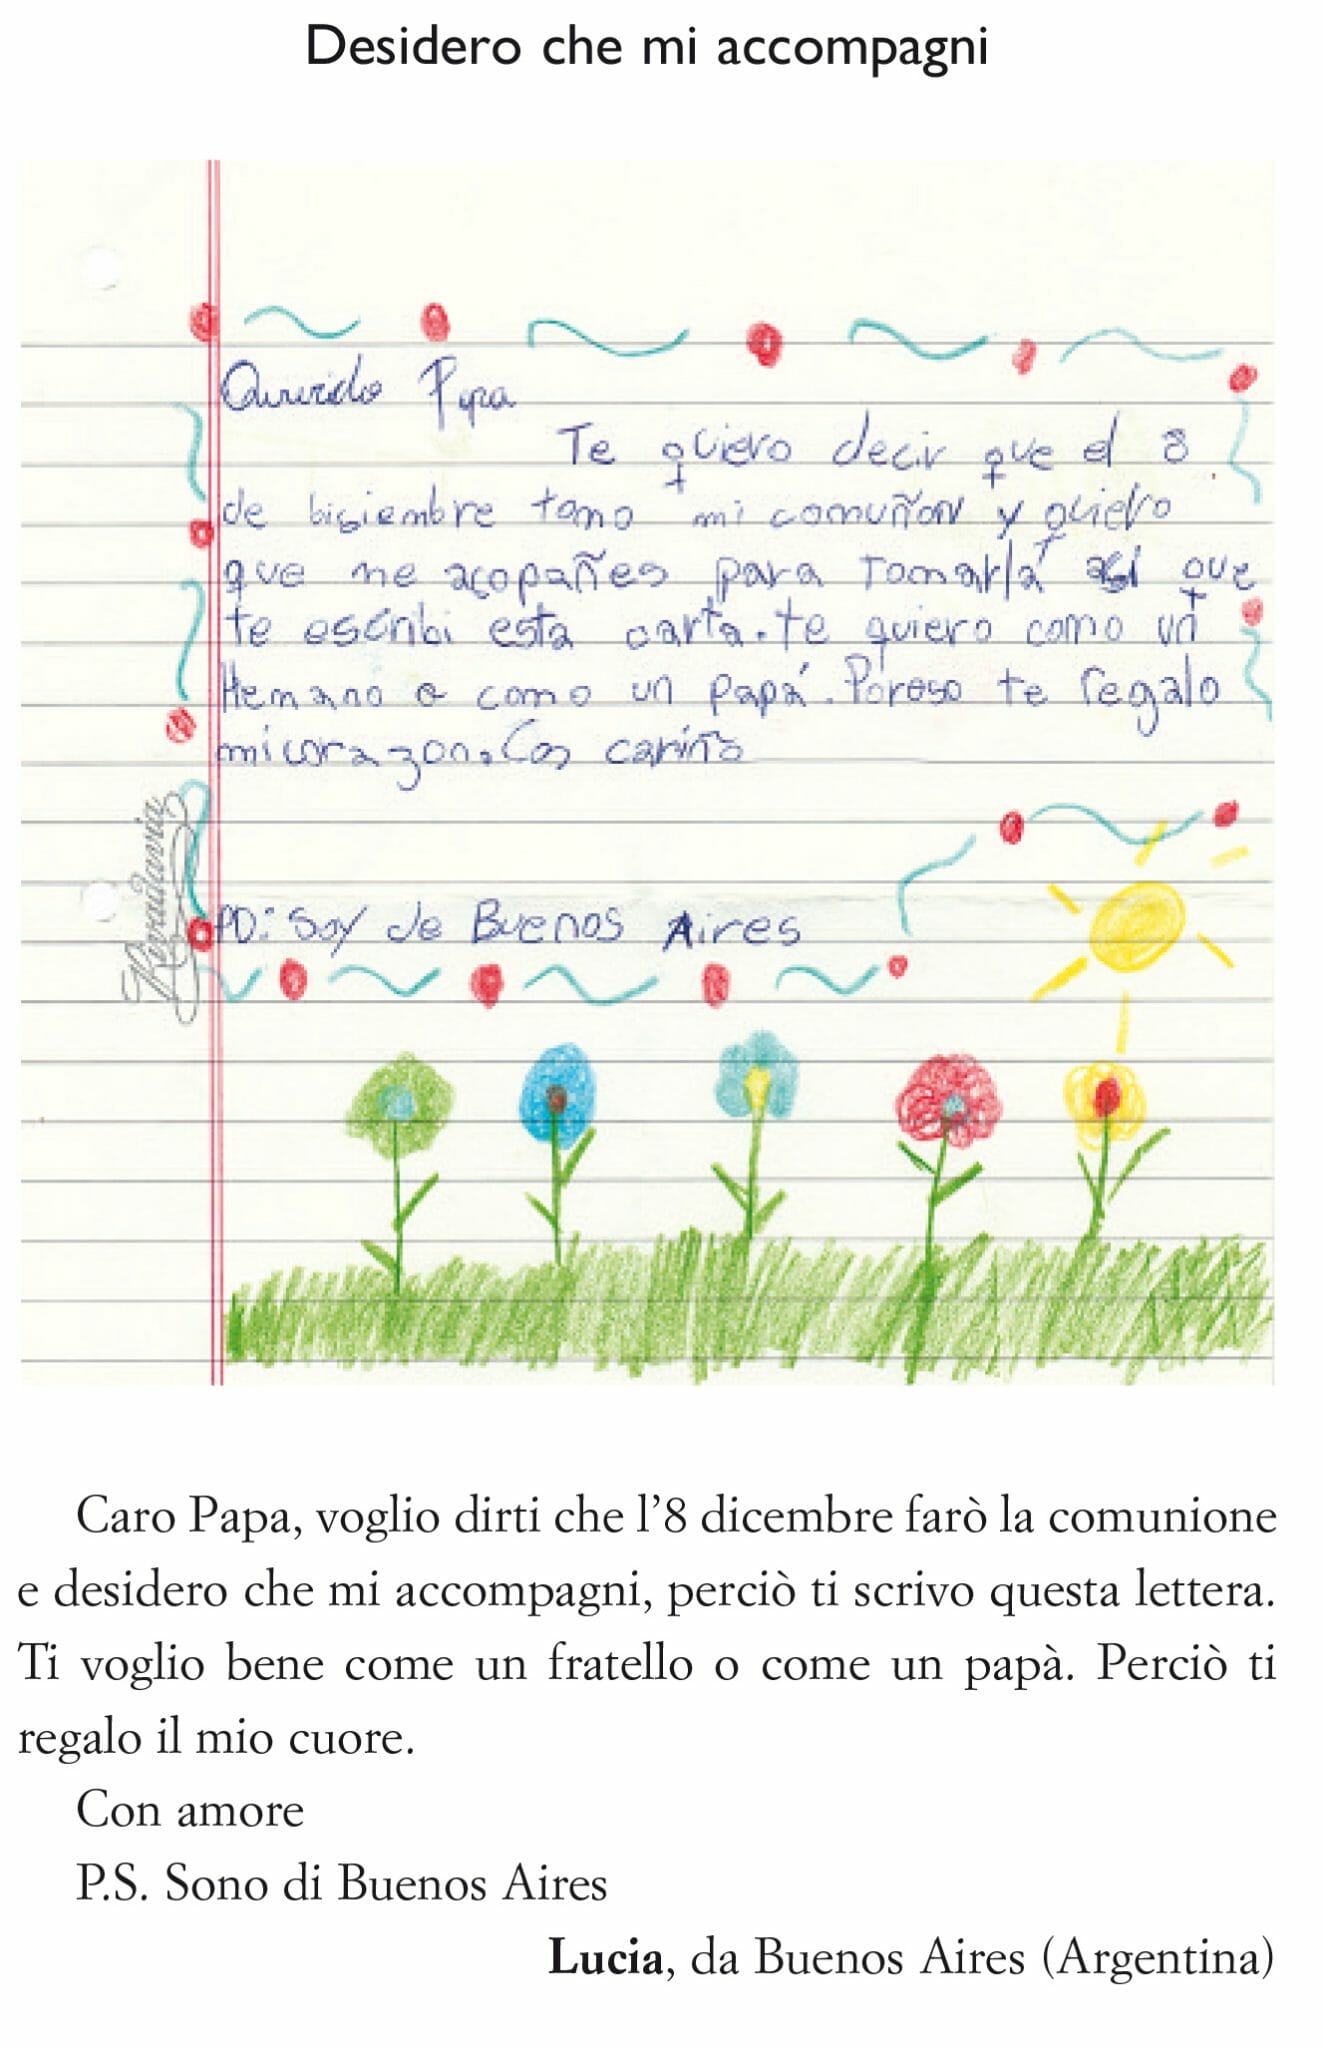 Desidero che mi accompagni
Querido Papa
Te quiero decir que el 8
de bisiembre tomo mi comuñon y quiero
que me acopañes para Tomarla así que
te escribi esta carta. te quiero como un
Hemano o como un papá. Poreso te regalo
micorazon. Con cariño
Rivadavia
PD: Soy de Buenos Aires
Caro Papa, voglio dirti che l’8 dicembre farò la comunione
e desidero che mi accompagni, perciò ti scrivo questa lettera.
Ti voglio bene come un fratello o come un papà. Perciò ti
regalo il mio cuore.
Con amore
P.S. Sono di Buenos Aires
Lucia, da Buenos Aires (Argentina)